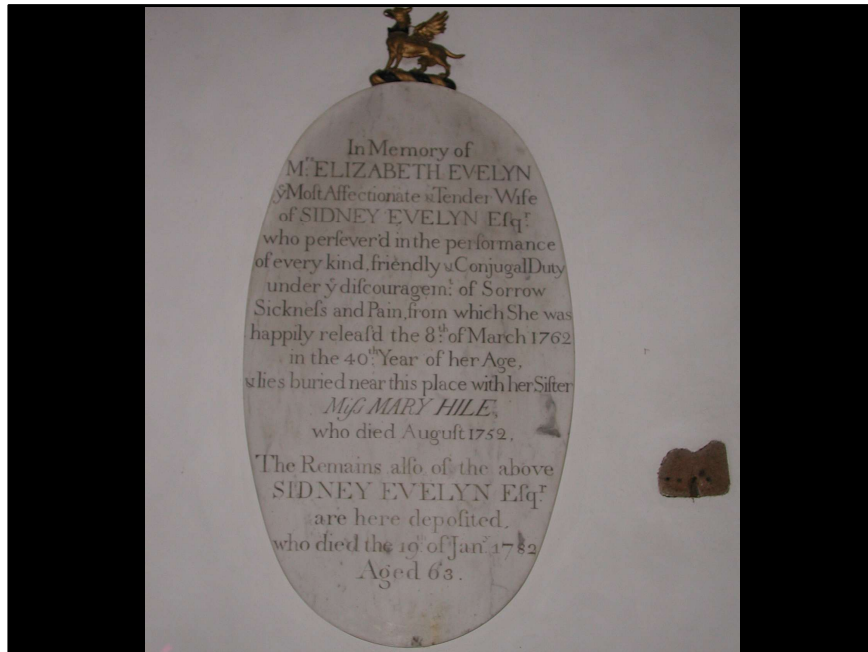 In Memory of
Mrs. ELIZABETH EVELYN
ẙ Moſt Affectionate & Tender Wife
of SIDNEY EVELYN Eſqr.
who perſever'd in the performance
of every kind, friendly & Conjugal Duty
under ẙ diſcouragemts. of Sorrow
Sickneſs and Pain, from which She was
happily releaſd the 8th. of March 1762
in the 40th. Year of her Age,
& lies buried near this place with her Siſter
Miſs MARY HILE,
who died Auguſt 1752.
The Remains alſo of the above
SIDNEY EVELYN Eſqr.
are here depoſited.
who died the 19th. of Janr. 1782
Aged 63.